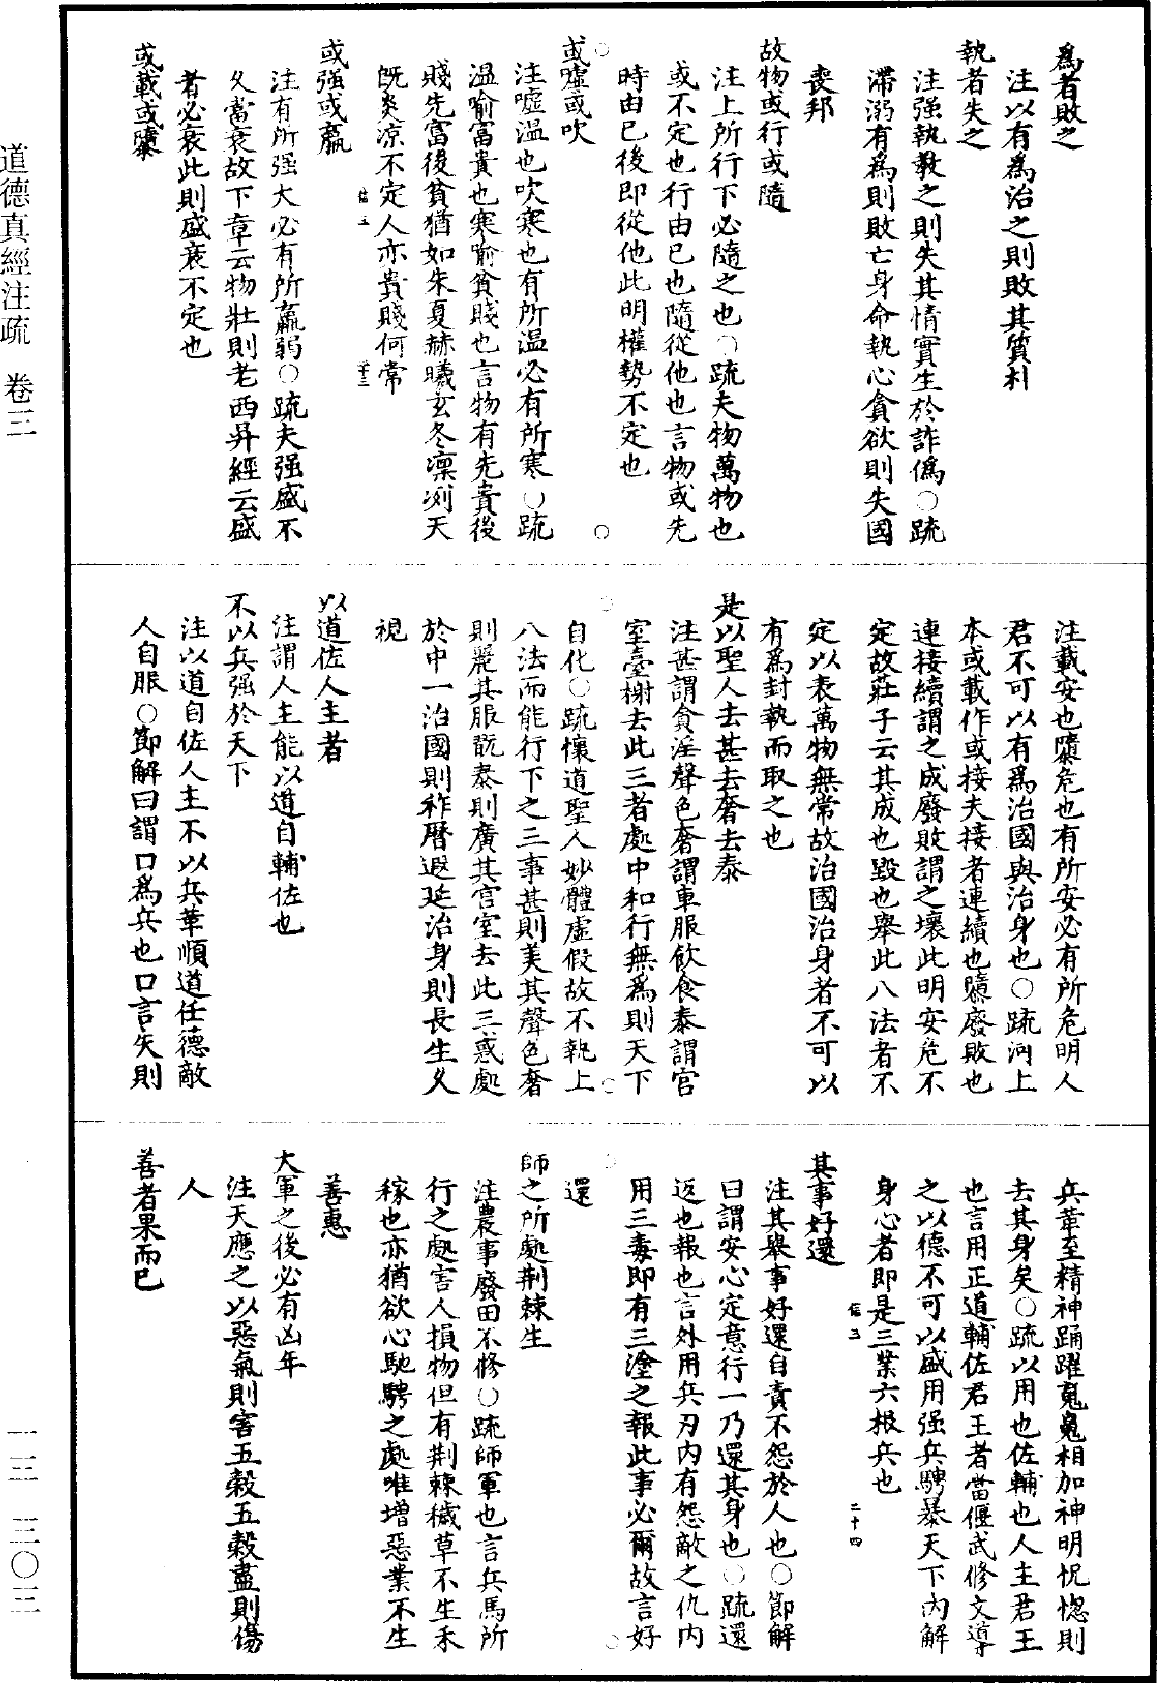 為者敗之
注以有為治之則敗其質朴
執者失之
注强執教之則失其情實生於詐偽○䟽
滯溺有為則敗亡身命執心貪欲則失國
喪邦
故物或行或隨
注上所行下必隨之也○䟽夫物萬物也
或不定也行由已也隨從他也言物或先
時由已後即從他此明權勢不定也
或噓或吹
注噓温也吹寒也有所温必有所寒○䟽
温喻富貴也寒喻貧賤也言物有先貴後
賤先富後貧猶如朱夏赫曦玄冬凛冽天
既炎凉不定人亦貴賤何常
或强或羸
注有所强大必有所羸弱○䟽夫强盛不
久當衰故下章云物壯則老西昇經云盛
者必衰此則盛衰不定也
或載或隳
注載安也隳危也有所安必有所危明人
君不可以有為治國與治身也○䟽河上
本或載作或接夫接者連續也隳廢敗也
連接續謂之成廢敗謂之壞此明安危不
定故莊子云其成也毀也舉此八法者不
定以表萬物無常故治國治身者不可以
有為封執而取之也
是以聖人去甚去奢去泰
注甚謂貪淫聲色奢謂車服飲食泰謂宫
室臺榭去此三者處中和行無為則天下
自化○䟽懷道聖人妙體虚假故不執上
八法而能行下之三事甚則美其聲色奢
則麗其服翫泰則廣其宫室去此三惑處
於中一治國則祚曆遐延治身則長生久
視
以道佐人主者
注謂人主能以道自輔佐也
不以兵强於天下
注以道自佐人主不以兵革順道任德敵
人自服○節解曰謂口為兵也口言失則
兵革至精神踊躍䰟䰟相加神明怳惚則
去其身矣○䟽以用也佐輔也人主君王
也言用正道輔佐君王者當偃武修文導
之以德不可以盛用强兵騁暴天下内解
身心者即是三業六根兵也
其事好還
注其舉事好還自責不怨於人也○節解
曰謂安心定意行一乃還其身也○䟽還
返也報也言外用兵刃内有怨敵之仇内
用三毒即有三塗之報此事必爾故言好
還
師之所處荆棘生
注農事廢田不修○䟽師軍也言兵馬所
行之處害人損物但有荆棘穢草不生禾
稼也亦猶欲心馳騁之處唯增惡業不生
善惠
大軍之後必有凶年
注天應之以惡氣則害五穀五穀盡則傷
人
善者果而已
道德真經注疏　卷三
一三　三〇三